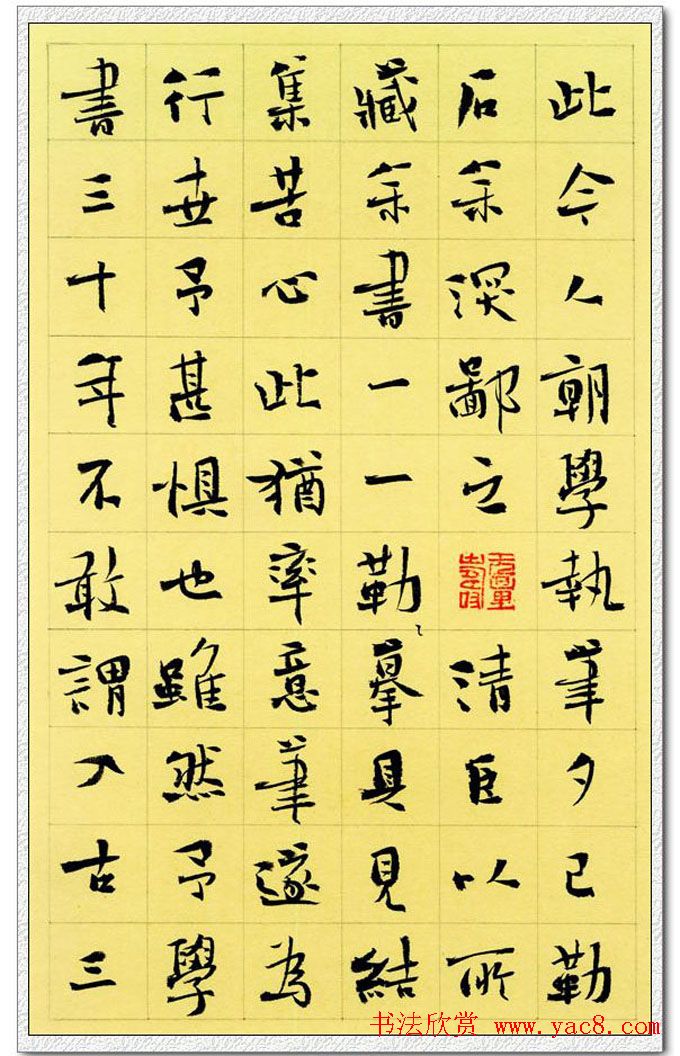 此今人朝學執筆夕已勒
石余深鄙之清臣以所
藏余書一一勒摹具見結
集苦心此猶率意筆遂為
行世予甚懼也雖然予學
書三十年不敢謂入古三
书法欣赏 www.yac8.com